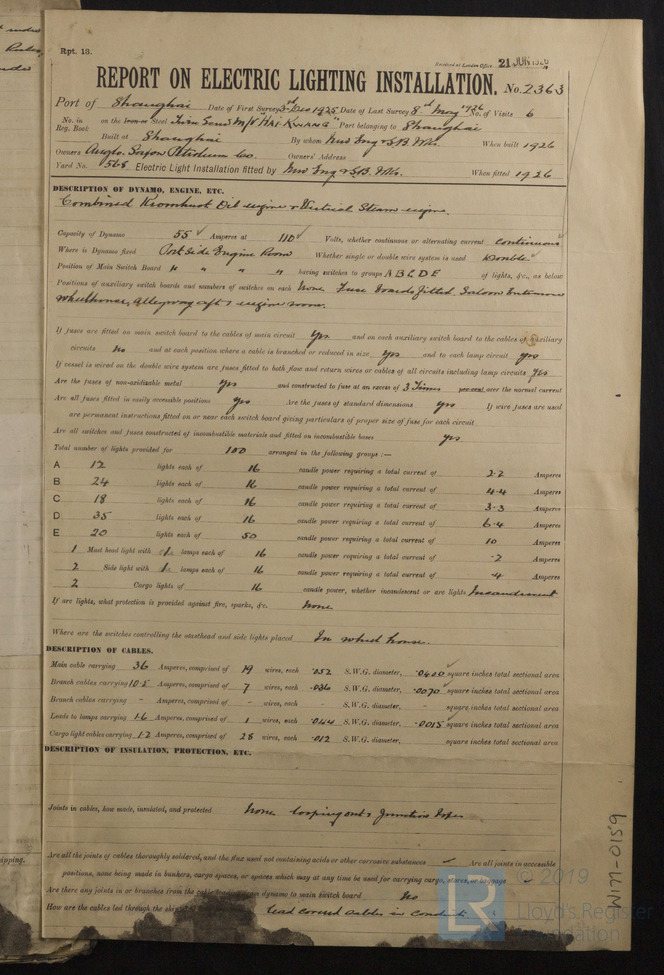 Rpt. 13.
Received at London Office 21 JUN 1926
REPORT ON ELECTRIC LIGHTING INSTALLATION. No. 2363
Port of Shanghai Date of First Survey 3rd Dec 1925 Date of Last Survey 8th May 1926 No. of Visits 6
No. in Reg. Book on the Iron or Steel Twin Screw M/V "HAI KWANG" Port belonging to Shanghai
Built at Shanghai By whom New Eng & S.B. Wks. When built 1926
Owners Anglo Saxon Petroleum Co. Owners' Address
Yard No. 568 Electric Light Installation fitted by New Eng & S.B. Wks. When fitted 1926
DESCRIPTION OF DYNAMO, ENGINE, ETC.
Combined Kromhout Oil engine & Vertical Steam engine.
Capacity of Dynamo 55 Amperes at 110 Volts, whether continuous or alternating current continuous
Where is Dynamo fixed Port Side Engine Room Whether single or double wire system is used Double
Position of Main Switch Board " " " " having switches to groups A B C D E of lights, &c., as below
Positions of auxiliary switch boards and numbers of switches on each None Fuse Boards fitted Saloon Entrance
Wheelhouse, alleyway aft & engine room.
If fuses are fitted on main switch board to the cables of main circuit Yes and on each auxiliary switch board to the cables of auxiliary
circuits No and at each position where a cable is branched or reduced in size yes and to each lamp circuit yes
If vessel is wired on the double wire system are fuses fitted to both flow and return wires or cables of all circuits including lamp circuits yes
Are the fuses of non-oxidizable metal yes and constructed to fuse at an excess of 3 Times per cent. over the normal current
Are all fuses fitted in easily accessible positions yes Are the fuses of standard dimensions yes If wire fuses are used
are permanent instructions fitted on or near each switch board giving particulars of proper size of fuse for each circuit
Are all switches and fuses constructed of incombustible materials and fitted on incombustible bases yes
Total number of lights provided for 100 arranged in the following groups :—
A 12 lights each of 16 candle power requiring a total current of 2.2 Amperes
B 24 lights each of 16 candle power requiring a total current of 4.4 Amperes
C 18 lights each of 16 candle power requiring a total current of 3.3 Amperes
D 35 lights each of 16 candle power requiring a total current of 6.4 Amperes
E 20 lights each of 50 candle power requiring a total current of 10 Amperes
1 Mast head light with 1 lamps each of 16 candle power requiring a total current of .2 Amperes
2 Side light with 1 lamps each of 16 candle power requiring a total current of .4 Amperes
2 Cargo lights of 16 candle power, whether incandescent or arc lights Incandescent
If arc lights, what protection is provided against fire, sparks, &c. None
Where are the switches controlling the masthead and side lights placed In wheel house.
DESCRIPTION OF CABLES.
Main cable carrying 36 Amperes, comprised of 19 wires, each .052 S.W.G. diameter, .0400 square inches total sectional area
Branch cables carrying 10.5 Amperes, comprised of 7 wires, each .036 S.W.G. diameter, .0070 square inches total sectional area
Branch cables carrying - Amperes, comprised of - wires, each - S.W.G. diameter, - square inches total sectional area
Leads to lamps carrying 1.6 Amperes, comprised of 1 wires, each .044 S.W.G. diameter, .0015 square inches total sectional area
Cargo light cables carrying 1.2 Amperes, comprised of 28 wires, each .012 S.W.G. diameter, square inches total sectional area
DESCRIPTION OF INSULATION, PROTECTION, ETC.
Joints in cables, how made, insulated, and protected None looping out & Junction
Are all the joints of cables thoroughly soldered, and the flux used not containing acids or other corrosive substances ✓ Are all joints in accessible
positions, none being made in bunkers, cargo spaces, or spaces which may at any time be used for carrying cargo, stores, or baggage
Are there any joints in or branches from the cable leading from dynamo to main switch board No
How are the cables led through the ship lead covered cables in conduit
W171-0159
LR © 2019
Lloyd's Register
Foundation